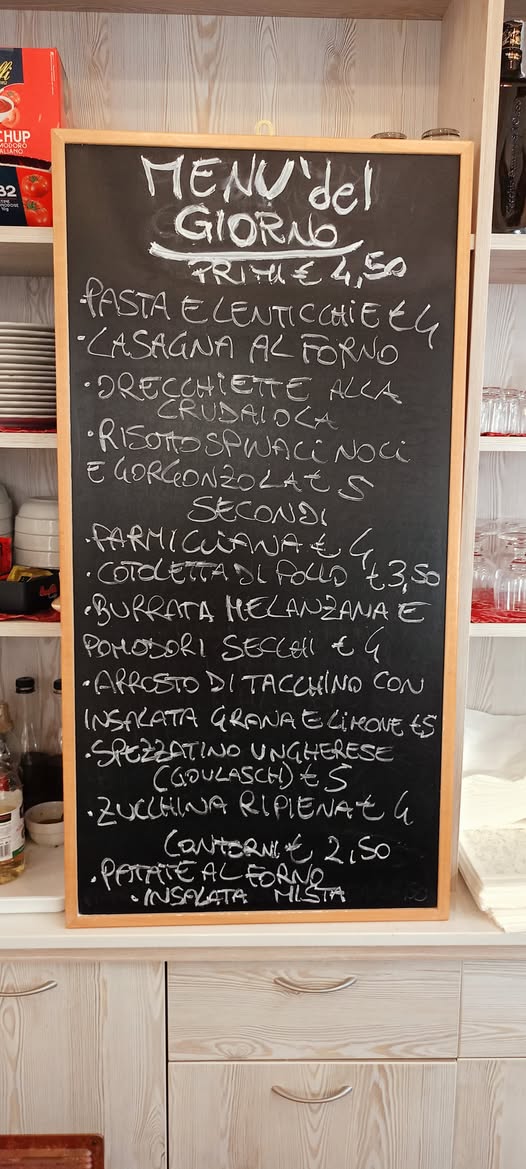 MENU' del
GIORNO
PRIMI € 4,50
·PASTA E LENTICCHIE €4
·LASAGNA AL FORNO
·ORECCHIETTE ALLA
CRUDAIOLA
·RISOTTO SPINACI NOCI
E GORGONZOLA € 5
SECONDI
·PARMIGIANA € 4
·COTOLETTA DI POLLO €3,50
·BURRATA MELANZANA E
POMODORI SECCHI € 4
·ARROSTO DI TACCHINO CON
INSALATA GRANA E LIMONE €5
·SPEZZATINO UNGHERESE
(GOULASCH) € 5
·ZUCCHINA RIPIENA € 4
CONTORNI € 2,50
·PATATE AL FORNO
·INSALATA MISTA
CHUP
POMODORO
ITALIANO
32